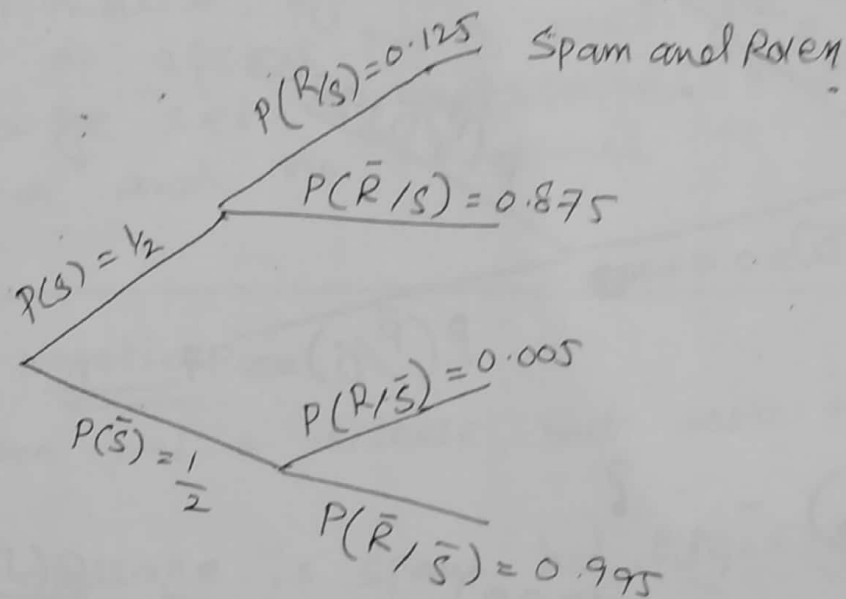 P(R/S) = 0.125 Spam and Rolex
P(R̄/S) = 0.875
P(S) = 1/2
P(R/S̄) = 0.005
P(S̄) = 1/2
P(R̄/S̄) = 0.995